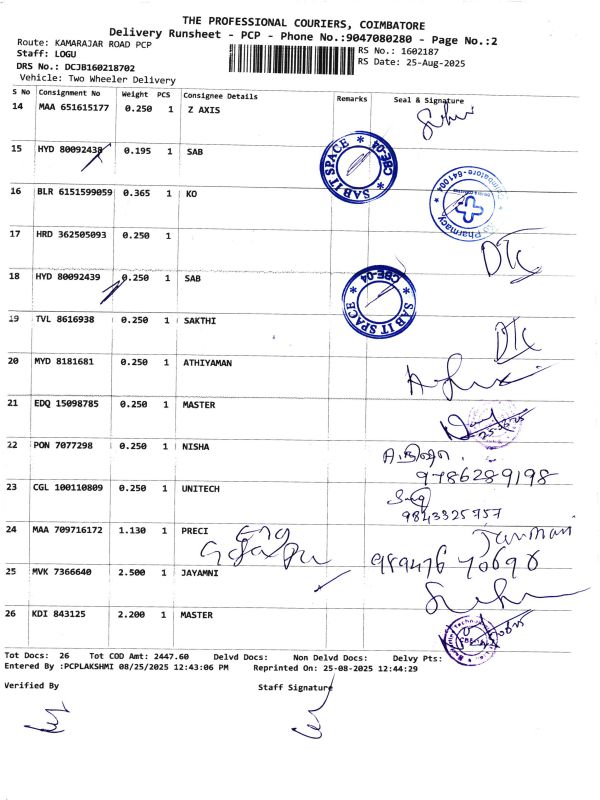 THE PROFESSIONAL COURIERS, COIMBATORE
Delivery Runsheet - PCP - Phone No.:9047080280 - Page No.:2
Route: KAMARAJAR ROAD PCP
RS No.: 1602187
Staff: LOGU
RS Date: 25-Aug-2025
DRS No.: DCJB160218702
Vehicle: Two Wheeler Delivery
S No Consignment No Weight PCS Consignee Details Remarks Seal & Signature
14 MAA 651615177 0.250 1 Z AXIS
15 HYD 80092438 0.195 1 SAB
SAB IT SPACE * CBE-04 *
16 BLR 6151599059 0.365 1 KO
Pharmacy * Coimbatore-641004
17 HRD 362505093 0.250 1
DTC
18 HYD 80092439 0.250 1 SAB
SAB IT SPACE * CBE-04 *
19 TVL 8616938 0.250 1 SAKTHI
DTC
20 MYD 8181681 0.250 1 ATHIYAMAN
21 EDQ 15098785 0.250 1 MASTER
22 PON 7077298 0.250 1 NISHA
9786289198
23 CGL 100110809 0.250 1 UNITECH
9843325757
24 MAA 709716172 1.130 1 PRECI
989476 70698
25 MVK 7366640 2.500 1 JAYAMNI
26 KDI 843125 2.200 1 MASTER
Tot Docs: 26 Tot COD Amt: 2447.60 Delvd Docs: Non Delvd Docs: Delvy Pts:
Entered By :PCPLAKSHMI 08/25/2025 12:43:06 PM Reprinted On: 25-08-2025 12:44:29
Verified By Staff Signature